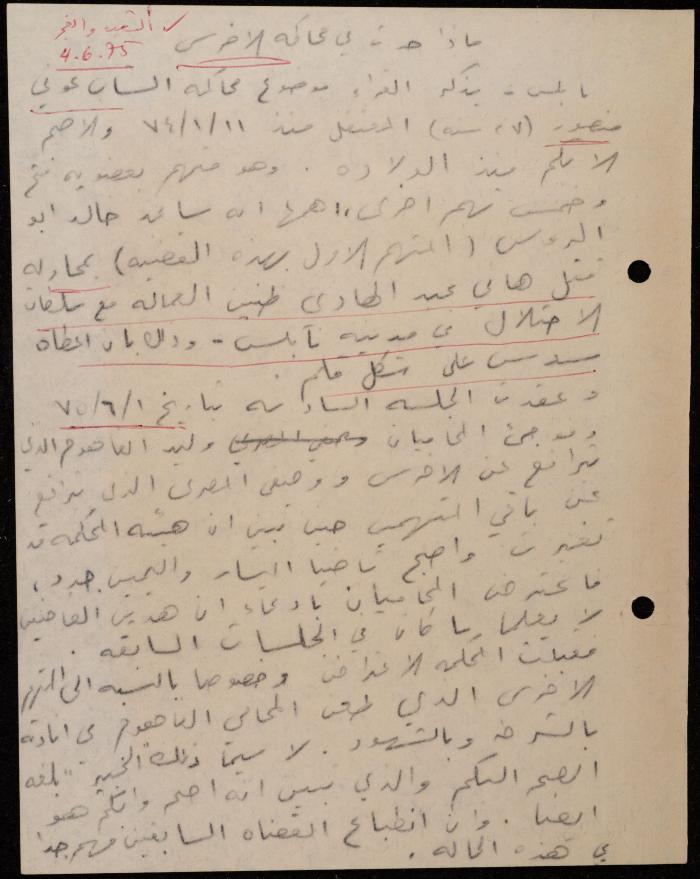 الشعب والفجر
4.6.75
ماذا حدث في محاكمة الاخرس
نابلس - يذكر القراء موضوع محاكمة الشاب عوني
منصور (٢٧ سنة) المعتقل منذ ٧٤/١/١١ والاصم
الابكم منذ الولادة . وهو متهم بعضوية فتح
وخمس تهم اخرى، اهمها انه ساعد خالد ابو
الروس (المتهم الاول بهذه القضية) بمحاولة
قتل هاني عبد الهادي طنين العمالة مع سلطات
الاحتلال في مدينة نابلس - وذلك بان اعطاه
مسدس على شكل قلم .
وعقدت الجلسة السادسة بتاريخ ٧٥/٦/١
وفوجئ المحاميان وليد الفاهوم الذي
يترافع عن الاخرس ووصفي المصري الذي يترافع
عن باقي المتهمين حين تبين ان هيئة المحكمة قد
تغيرت واصبح قاضيا اليسار واليمين جدد ،
فاعترض المحاميان بادعاء ان هذين القاضيين
لا يعلما ما كان في الجلسات السابقة .
فقبلت المحكمة الاعتراض وخصوصا بالنسبة الى المتهم
الاخرس الذي طعن المحامي الفاهوم في افادته
بالشرطة وبالشهود . لا سيما ذلك الخبير "بلغة
الصم البكم والذي تبين انه اصم وابكم هو
ايضا . وان انطباع القضاة السابقين مهم جدا
في هذه الحالة .